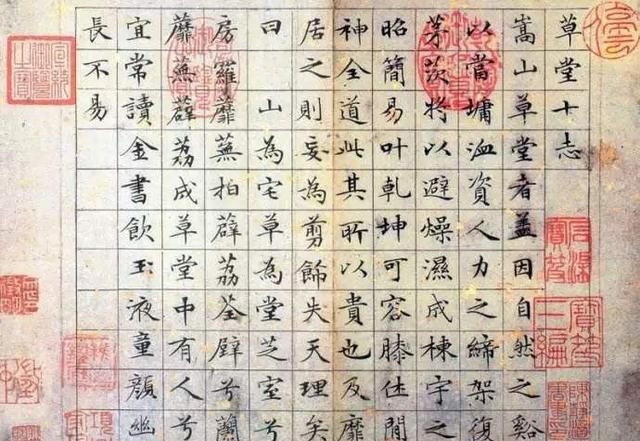 草堂十志
嵩山草堂者盖因自然之谿
以當墉洫資人力之締架復
茅茨將以避燥濕成棟宇之
昭簡易叶乾坤可容膝休閒
神全道此其所以貴也及靡
居之則妄為剪飾失天理矣
曰 山為宅草為堂芝室兮
房羅蘼蕪拍薜荔荃壁兮蘭
蘼蕪薜荔成草堂中有人兮
宜常讀金書飲玉液童顏幽
長不易
石渠寶笈
寶笈三編